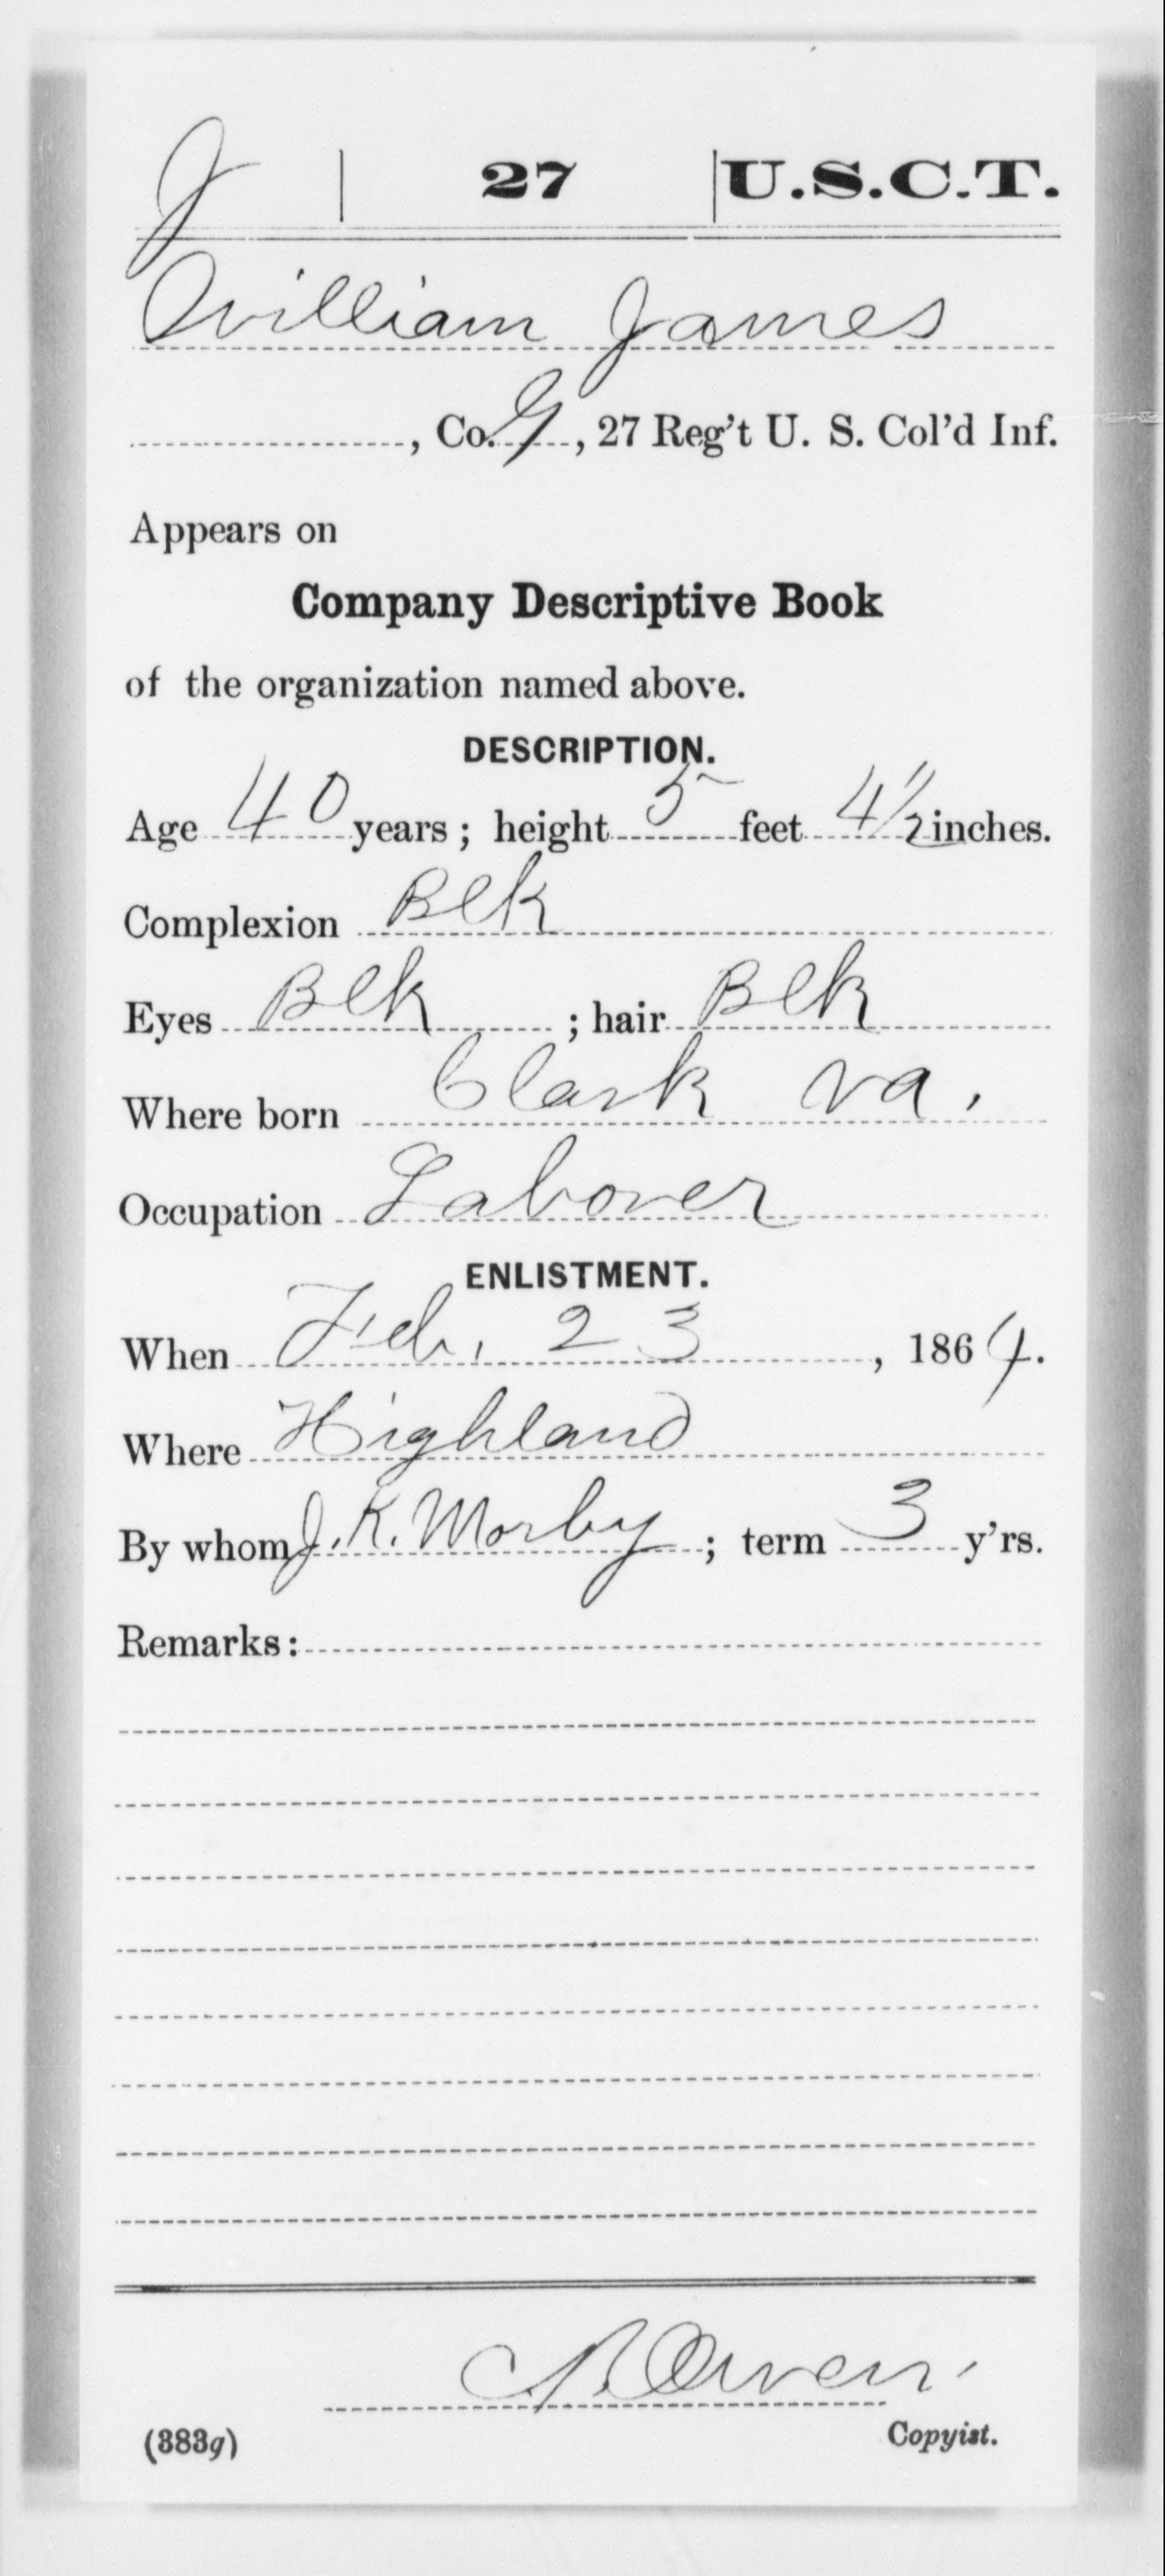 J | 27 | U.S.C.T.
William James
, Co. G, 27 Reg't U. S. Col'd Inf.
Appears on
Company Descriptive Book
of the organization named above.
DESCRIPTION.
Age 40 years; height 5 feet 4½ inches.
Complexion Blk
Eyes Blk ; hair Blk
Where born Clark Va.
Occupation Laborer
ENLISTMENT.
When Feb. 23, 1864.
Where Highland
By whom J. K. Morby; term 3 y'rs.
Remarks:
Owen
(383g) Copyist.